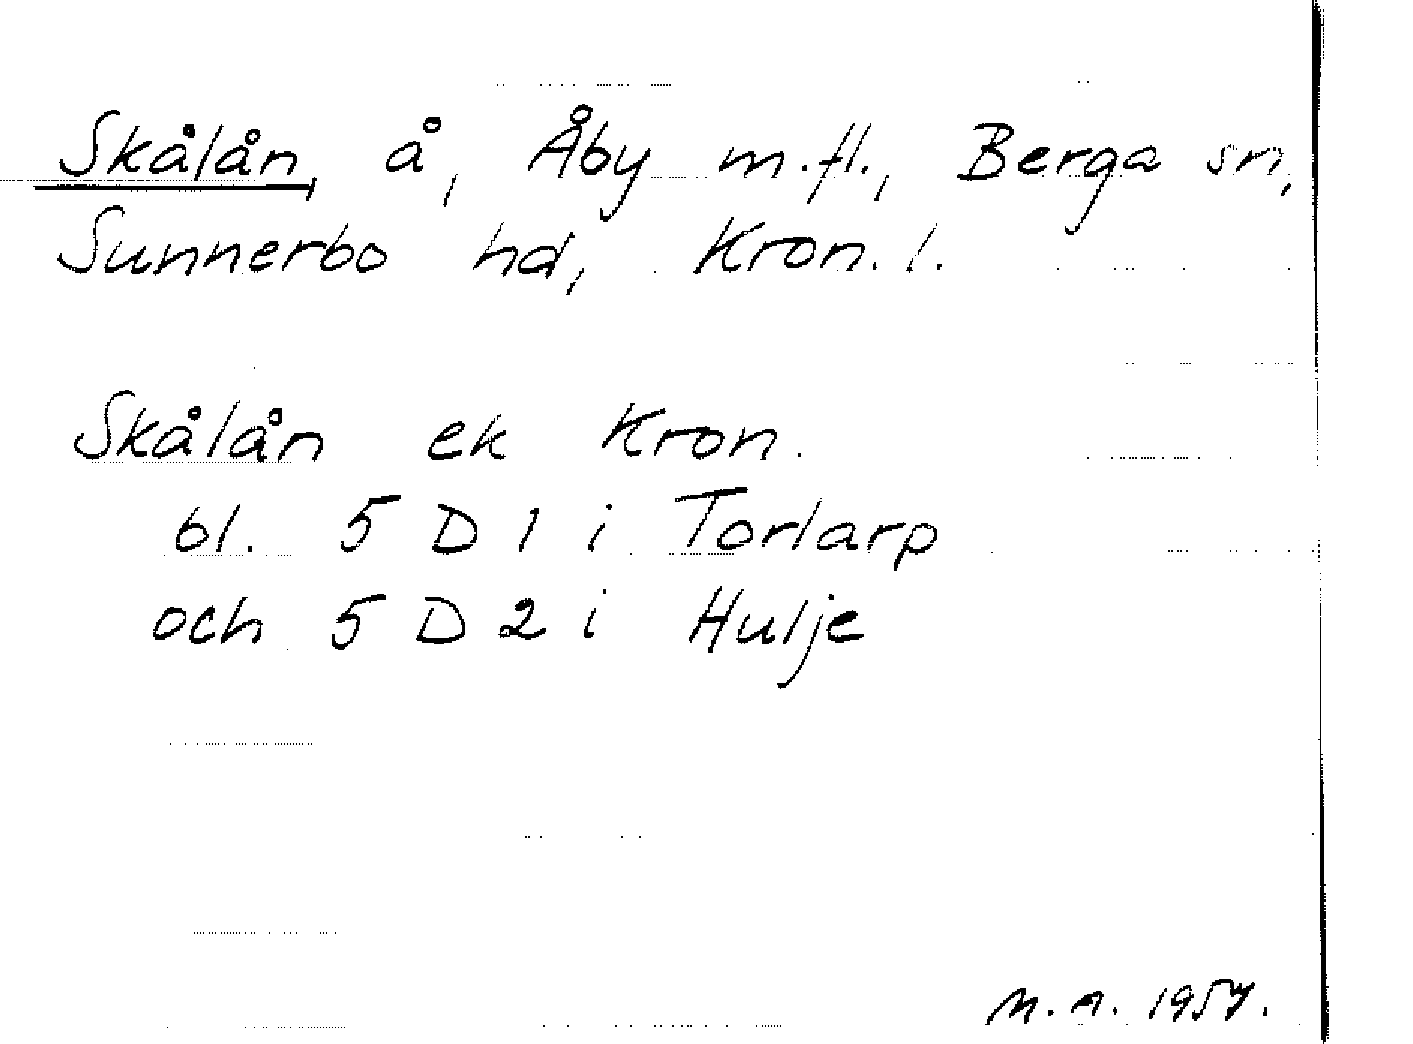 Skålån, å, Åby m.fl., Berga sn,
Sunnerbo hd, Kron. l.
Skålån ek Kron.
bl. 5 D 1 i Torlarp
och 5 D 2 i Hulje
M. A. 1957.